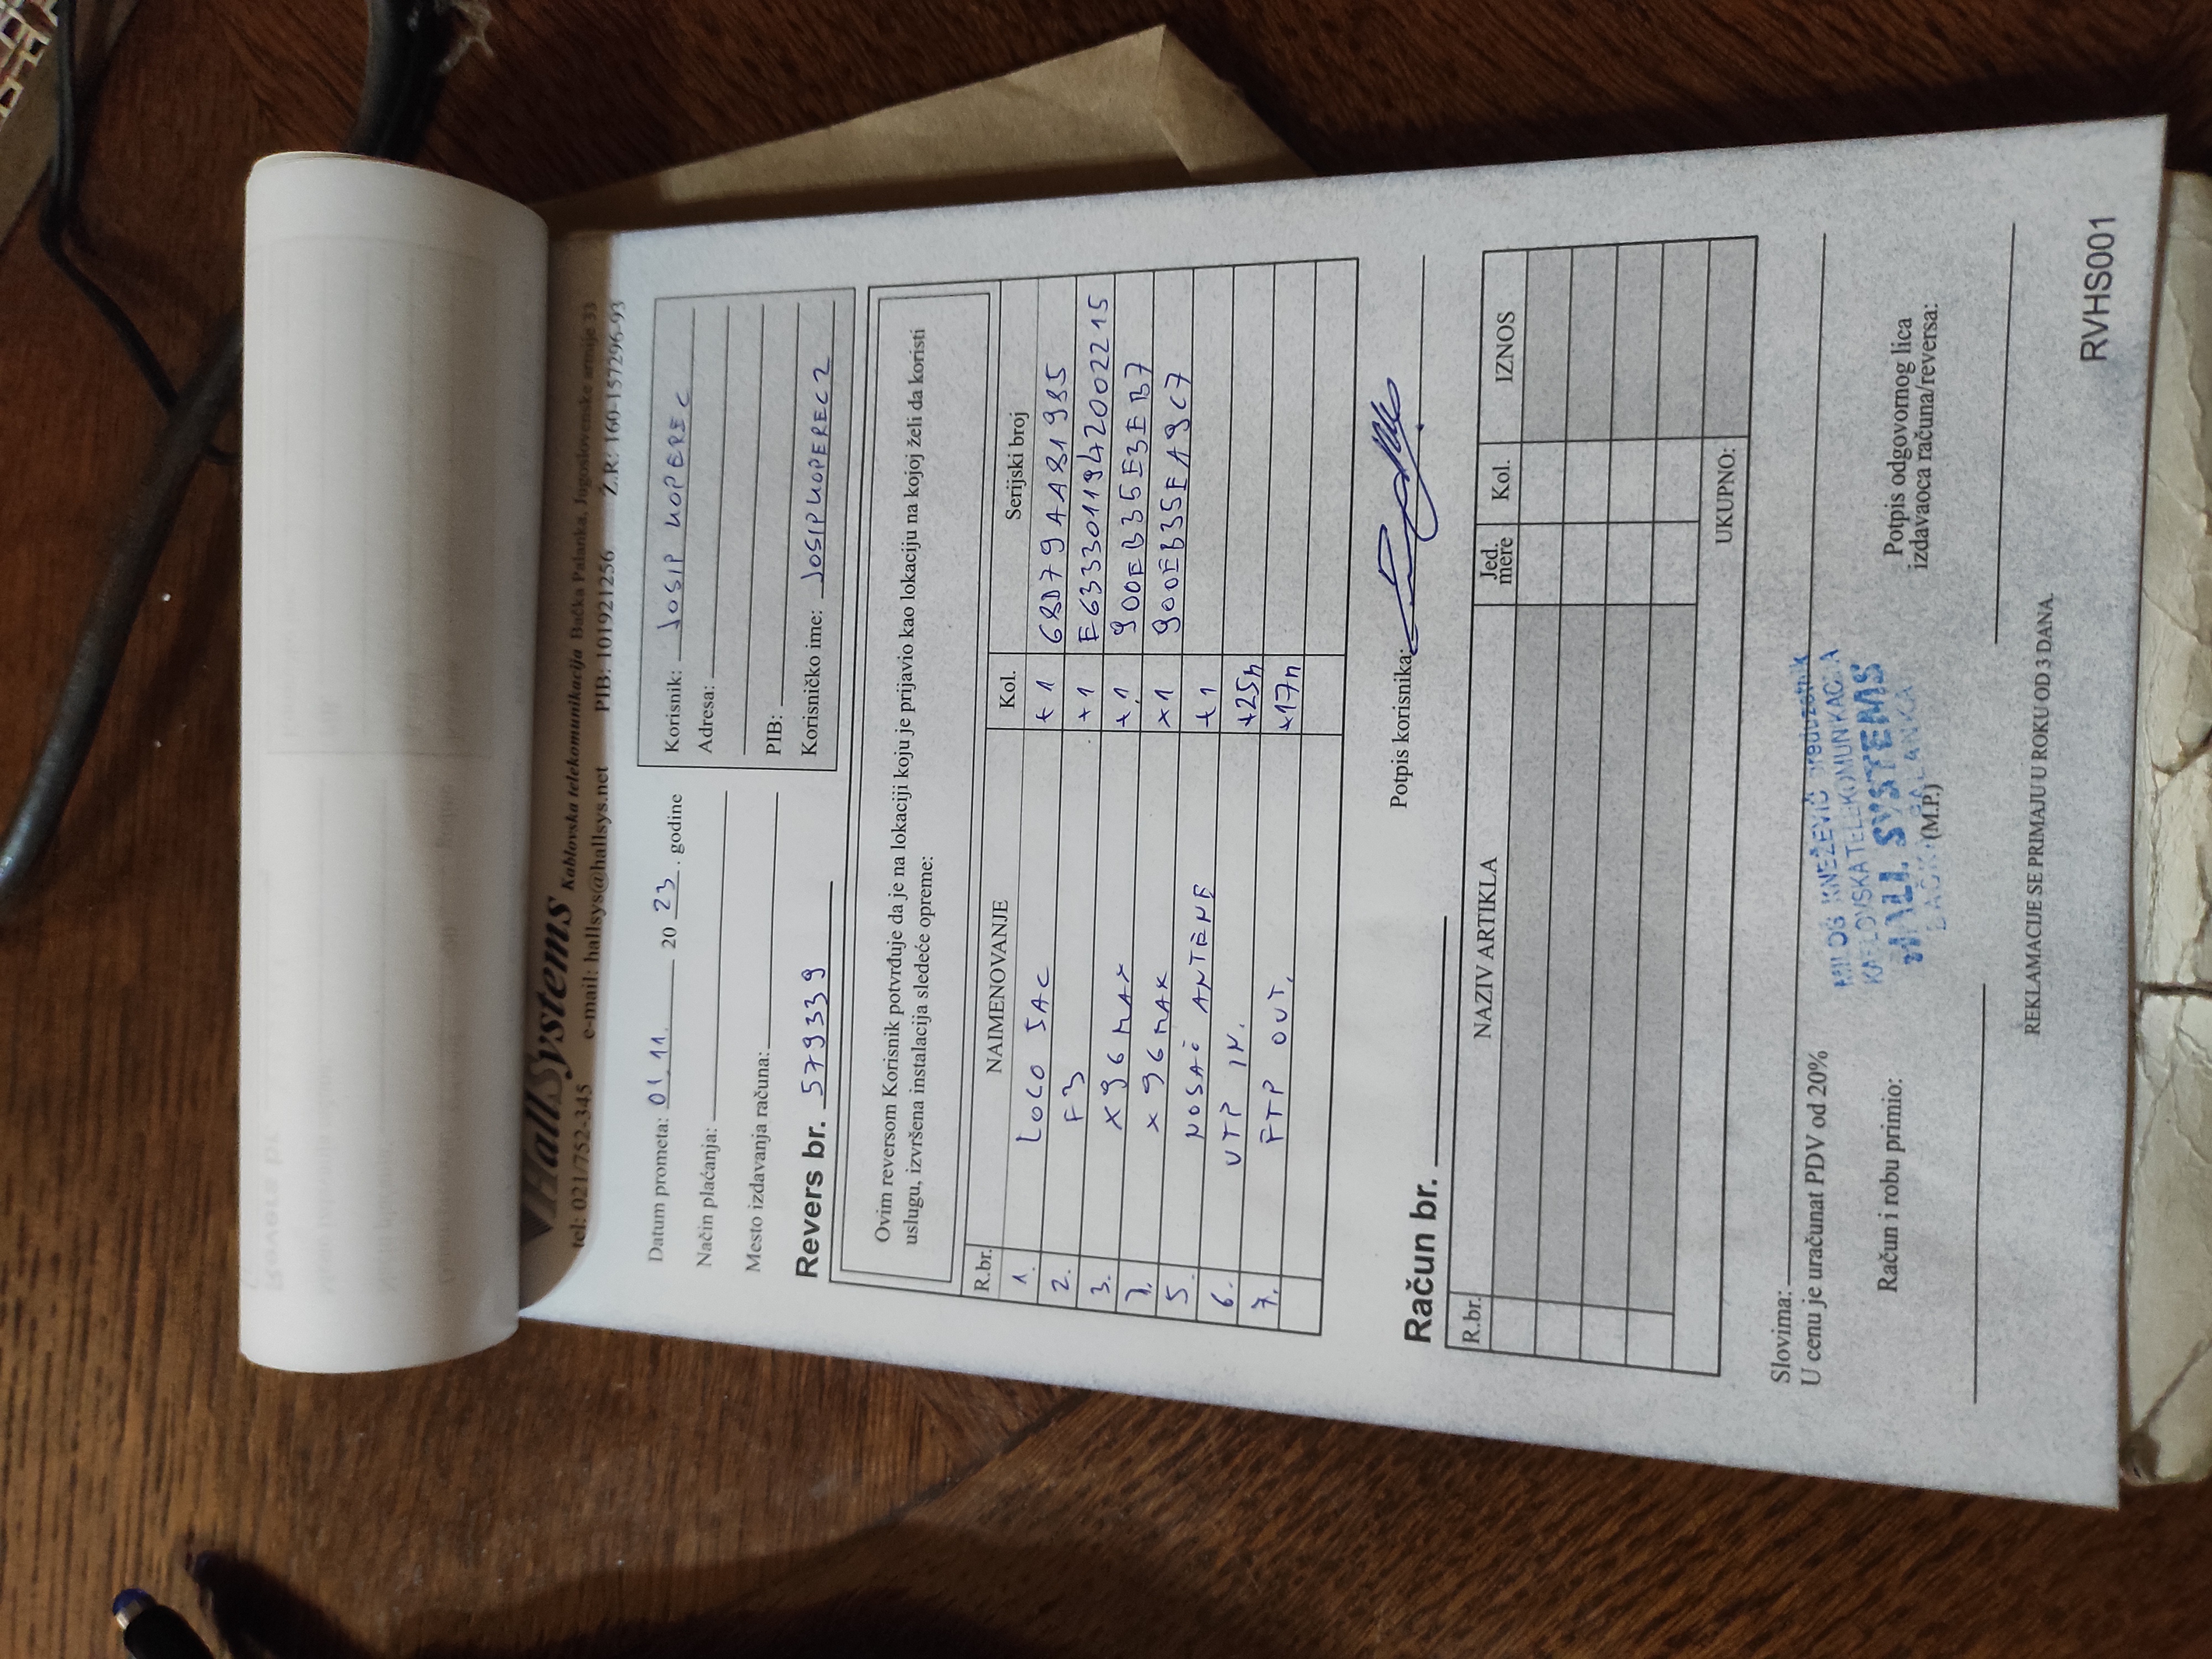 HallSystems Kablovska telekomunikacija Bačka Palanka, Jugoslovenske armije 33
tel: 021/752-345 e-mail: hallsys@hallsys.net PIB: 101921256 Ž.R: 160-157296-93
Datum prometa: 01.11. 20 23. godine
Način plaćanja:
Mesto izdavanja računa:
Revers br. 579339
Korisnik: JOSIP KOPEREC
Adresa:
PIB:
Korisničko ime: JOSIPKOPEREC2
Ovim reversom Korisnik potvrđuje da je na lokaciji koju je prijavio kao lokaciju na kojoj želi da koristi
uslugu, izvršena instalacija sledeće opreme:
R.br. NAIMENOVANJE Kol. Serijski broj
1. LOCO 5AC +1 68D79AA81985
2. F3 +1 E6333011942002215
3. X96 MAX +1 900EB35E3EB7
7. X96 MAX +1 900EB35EA9C7
5. NOSAČ ANTENE +1
6. UTP IN. +25m
7. FTP OUT. +17m
Potpis korisnika:
Račun br.
R.br. NAZIV ARTIKLA Jed. mere Kol. IZNOS
UKUPNO:
Slovima:
U cenu je uračunat PDV od 20%
MILOŠ KNEŽEVIĆ preduzetnik
KABLOVSKA TELEKOMUNIKACIJA
HALL SYSTEMS
BAČKA PALANKA
Račun i robu primio:
(M.P.)
Potpis odgovornog lica
izdavaoca računa/reversa:
REKLAMACIJE SE PRIMAJU U ROKU OD 3 DANA.
RVHS001